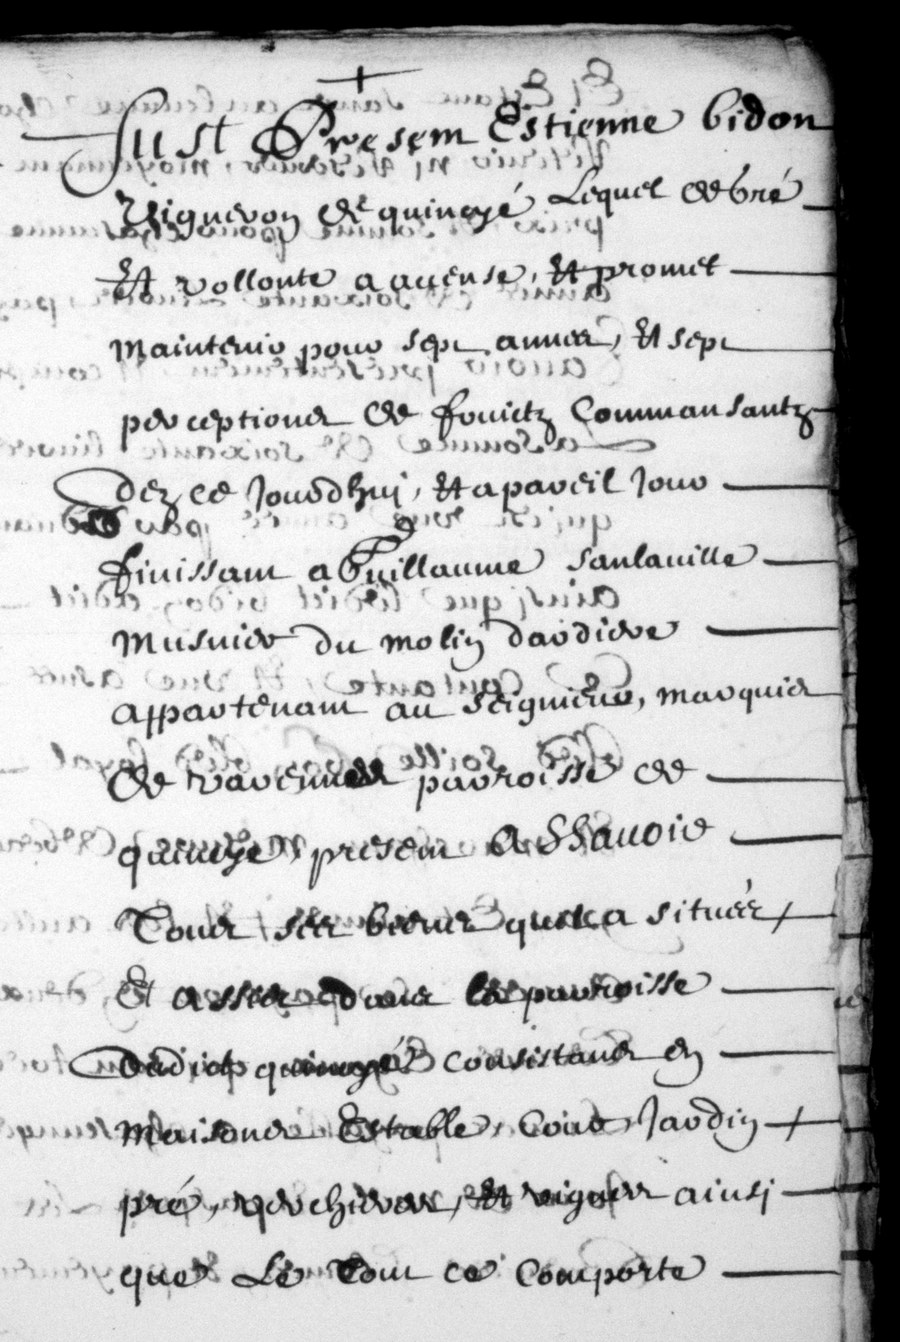 Fust Present Estienne bidon
Vigneron de quincyé Lequel de gré
Et vollonte a accense, Et promet
Maintenir pour sept annees, Et sept
perceptions de fruictz Commansantz
dez ce Jourdhuj, Et a pareil Jour
finissant a Guillaume Sanlaville
Musnier du molin dardiere
appartenant au Seignieur, marquis
De varennes parroisse de
quincye, present A Scavoir
Tous ses biens quil a situéés
Et asses dans la parroisse
dudict quincyé Consistans En
Maisons Estable, Court Jardin
pré, verchieres, Et vignes ainsj
que Le Tout ce Comporte